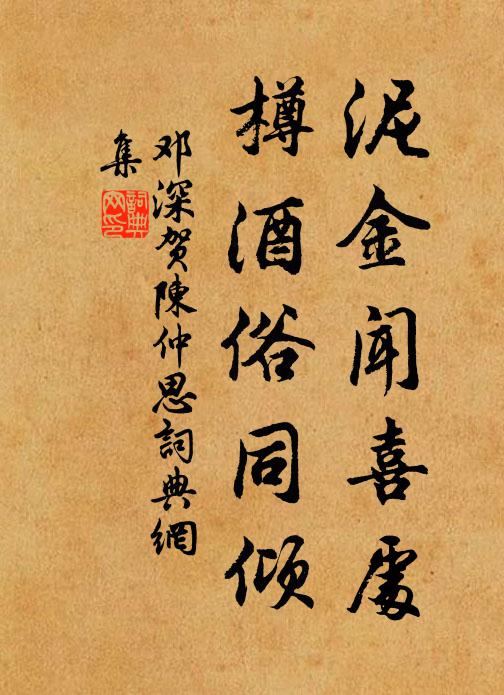 泥金闻喜處
樽酒俗同倾
邓深贺陳仲思詞典網
集
詞典网印